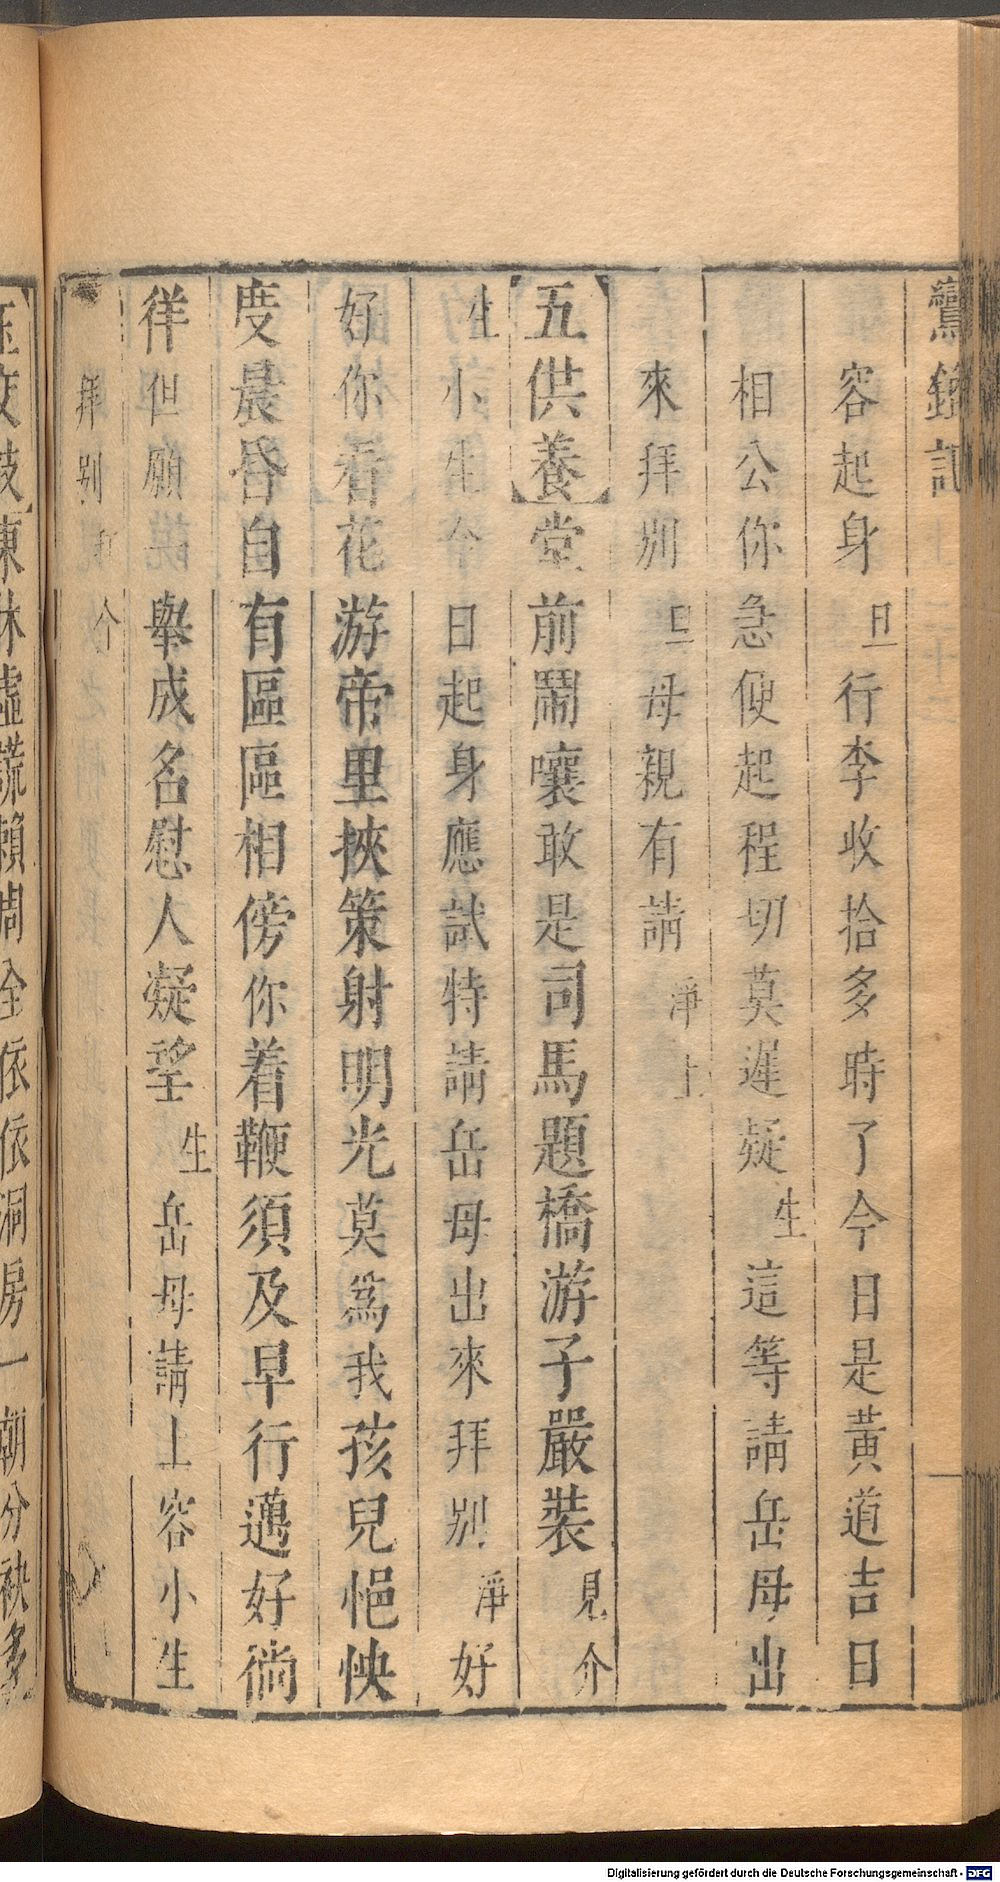 鸞鎞記
容起身 旦 行李收拾多時了今日是黃道吉日
相公你急便起程切莫遲疑 生 這等請岳母出
來拜別 旦 母親有請 淨上
【五供養】堂前鬧嚷敢是司馬題橋游子嚴裝 見介
生 小生今日起身應試特請岳母出來拜別 淨 好
好你看花游帝里挾策射明光莫為我孩兒悒怏
度晨昏自有區區相傍你着鞭須及早行邁好徜
徉但願舉成名慰人凝望 生 岳母請上容小生
拜別 介
東牀虛謊賴周全依依洞房一朝分袂多
Digitalisierung gefördert durch die Deutsche Forschungsgemeinschaft - DFG